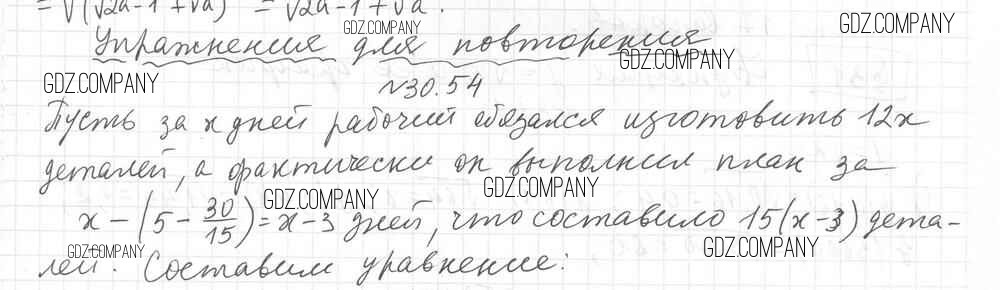 = √(√2a-1 + √a) = √2a-1 + √a.
GDZ.COMPANY GDZ.COMPANY
Упражнения для повторения
GDZ.COMPANY
GDZ.COMPANY №30.54
Пусть за x дней рабочий обязался изготовить 12x
деталей, а фактически он выполнил план за
GDZ.COMPANY GDZ.COMPANY
x - (5 - 30/15) = x - 3 дней, что составило 15(x-3) дета-
GDZ.COMPANY GDZ.COMPANY
лей. Составим уравнение: